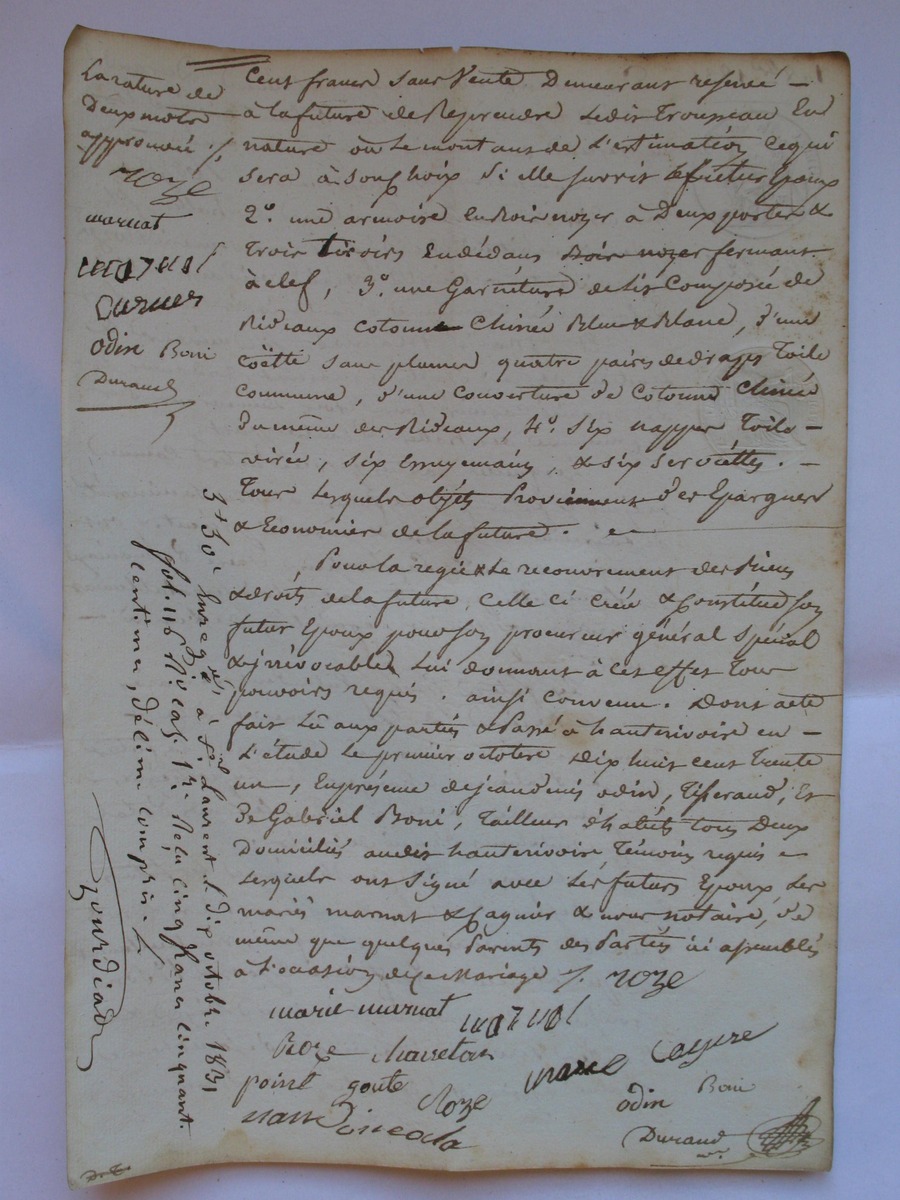 La rature de
Deux mots
approuvée ./.
roze
marnat
Odin Boni
Durand
Cent francs sans Vente Demeurant reservé —
à la future de Reprendre Ledit Trousseau En
nature ou Le montant de L'estimation Ce qui
sera à son Choix si elle survit le futur Epoux
2°. une armoire En Bois noyer à Deux portes &
Trois tiroirs En dédans Bois noyer fermant
à clef, 3°. une Garniture de Lit Composée de
Rideaux cotonne Chinée Bleu & Blanc, d'une
Coëtte sans plumes, quatre paires de draps Toile
commune, d'une couverture de Cotonne Chinée
Du même des Rideaux, 4°. six nappes Toile —
virée, six Essuyemains, & six serviettes. —
Tous Lesquels objets Proviennent d'es Epargnes
& Economies de la future.
Pour la regie & Le recouvrement des Biens
& droits de la future, Celle ci crée & Constitue son
futur Epoux pour son procureur général spécial
& irrévocable, Lui donnant à cet effet Tous
pouvoirs requis. ainsi convenu. Dont acte
fait Lû aux parties & Passé à hauterivoire en —
L'étude Le premier octobre Dix huit cent Trente
un, En présence de jean denis odin, Tisserand, Et
De Gabriel Boni, Tailleur d'habits Tous Deux
Domiciliés audit hauterivoire, Témoins requis
Lesquels ont signé avec Les futurs Epoux, Les
mariés marnat & Cagnier & nous notaire, de
même que quelques Parents des Parties ici assemblés
à L'occasion de Ce Mariage ./. roze
marie marnat
Roze
point goute
Roze
odin Boni
Durand
Enreg.é à S.t Laurent Le dix octobre 1831
fol. 116 R.o cas. 1.re Reçu cinq francs cinquante
centimes, décime compris